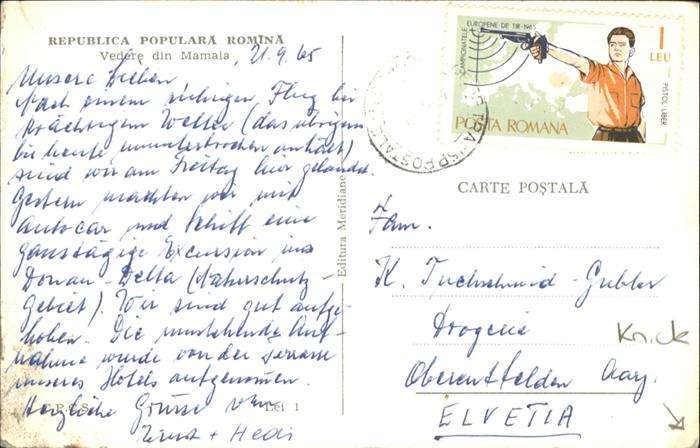 REPUBLICA POPULARĂ ROMÎNĂ
Vedere din Mamaia
21.9.65
Unsere Lieben
Nach einem ruhigen Flug bei
prächtigem Wetter (das übrigens
bis heute ununterbrochen anhält)
sind wir am Freitag hier gelandet.
Gestern machten wir mit
Autocar und Schiff eine
ganztägige Excursion ins
Donau-Delta (Naturschutz-
Gebiet). Wir sind gut aufge-
hoben. Die umstehende Auf-
nahme wurde von der Terrasse
unseres Hotels aufgenommen.
Herzliche Grüsse von
Ernst + Hedi
Lei 1
Editura Meridiane
CAMPIONATELE EUROPENE DE TIR-1965
1
LEU
PISTOL LIBER
POSTA ROMANA
CARTE POȘTALĂ
Fam.
K. Tuchschmid-Gubler
Drogerie
Oberentfelden Aarg.
ELVEȚIA
Knick